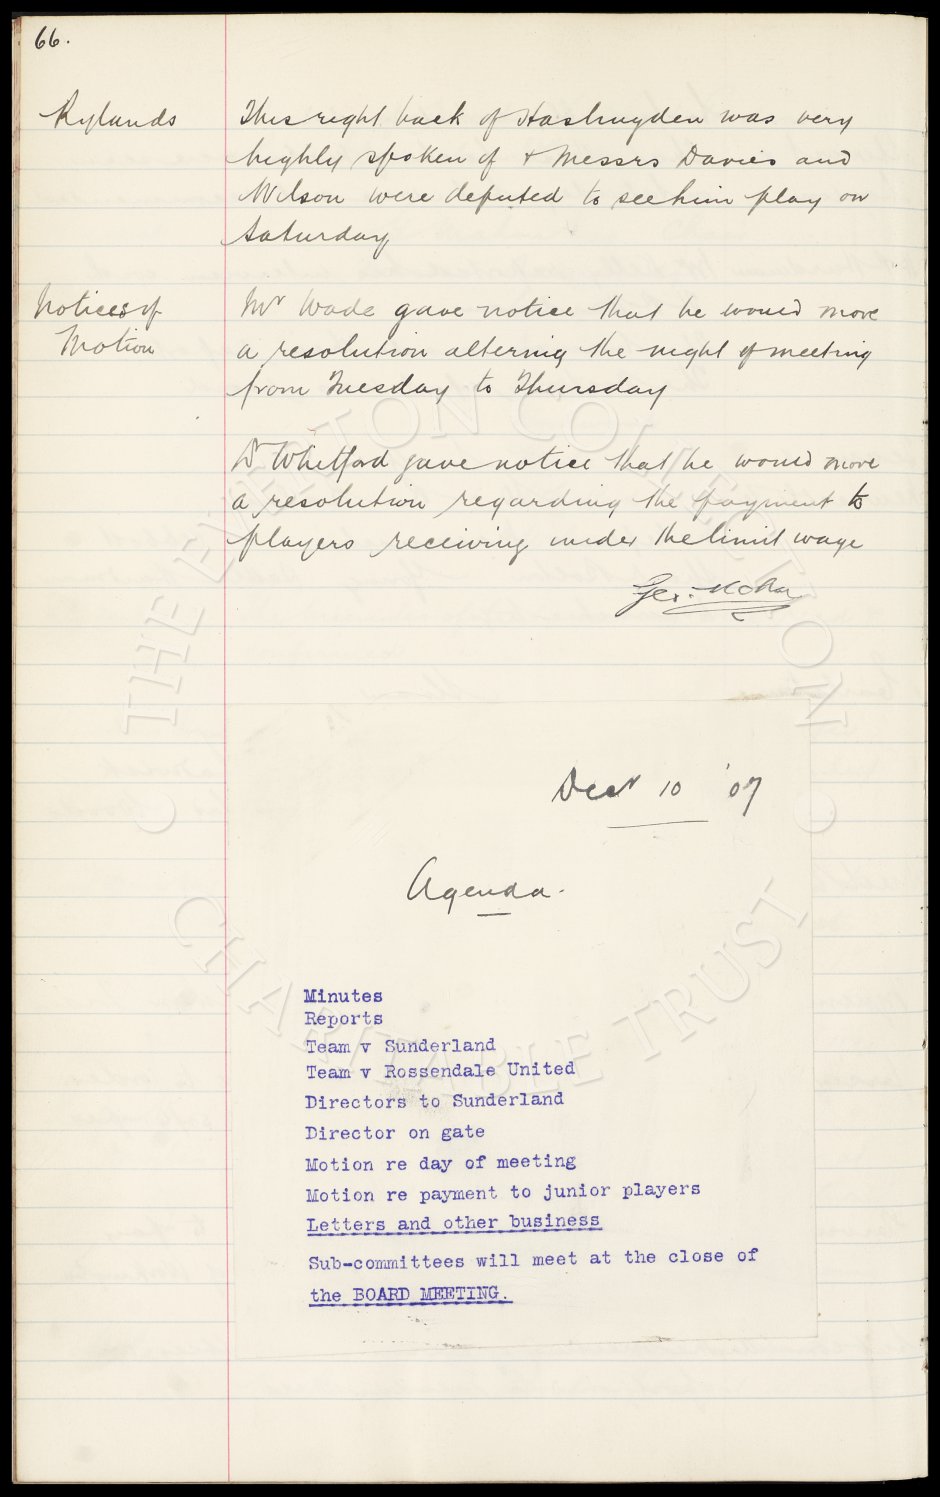 66.
Rylands
This right back of Haslingden was very
highly spoken of & Messrs Davies and
Wilson were deputed to see him play on
Saturday
Notices of
Motion
Mr Wade gave notice that he would move
a resolution altering the night of meeting
from Tuesday to Thursday
Dr Whitford gave notice that he would move
a resolution regarding the payment to
players receiving under the limit wage
Decr 10 '07
Agenda.
Minutes
Reports
Team v Sunderland
Team v Rossendale United
Directors to Sunderland
Director on gate
Motion re day of meeting
Motion re payment to junior players
Letters and other business
Sub-committees will meet at the close of
the BOARD MEETING.
THE EVERTON COLLECTION
CHARITABLE TRUST